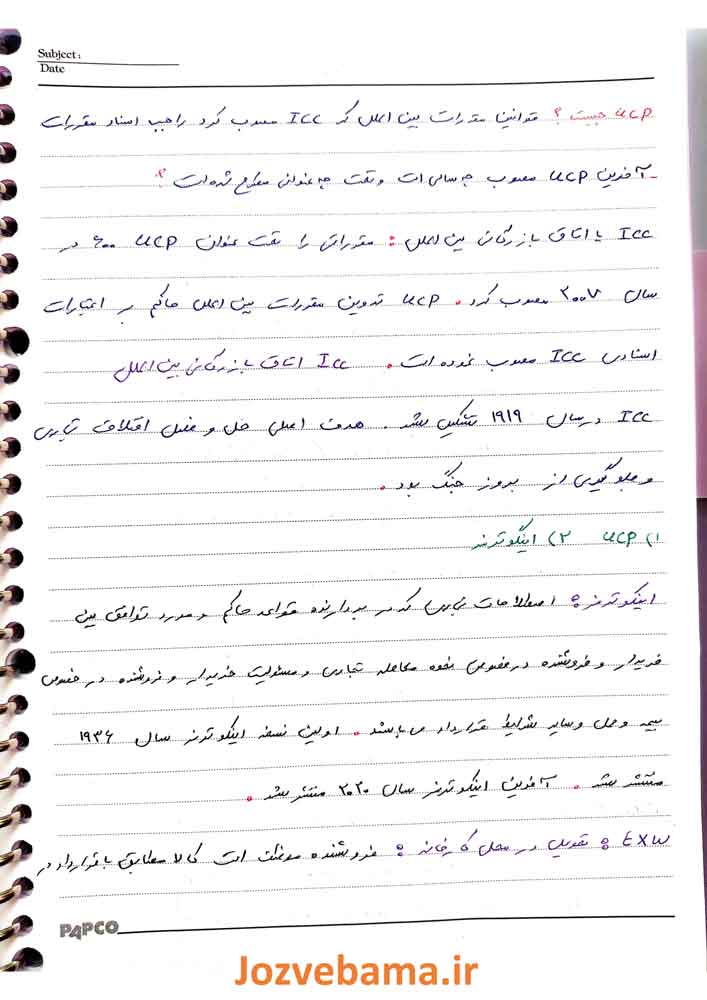 Subject:
Date
UCP چیست؟ قوانین مقررات بین الملل که ICC مصوب کرد راجب اسناد مقررات
- آخرین UCP مصوب چه سالی است و تحت چه عنوانی مطرح شده است؟
ICC یا اتاق بازرگانی بین الملل: مقرراتی را تحت عنوان UCP 600 در
سال 2007 مصوب کرد. UCP تدوین مقررات بین الملل حاکم بر اعتبارات
اسنادی ICC مصوب نموده است. ICC اتاق بازرگانی بین الملل
ICC در سال 1919 تشکیل شد. هدف اصلی حل و فصل اختلاف تجاری
و جلوگیری از بروز جنگ بود.
1) UCP 2) اینکوترمز
اینکوترمز: اصطلاحات تجاری که در بردارنده قواعد حاکم و مورد توافق بین
خریدار و فروشنده در خصوص نحوه معامله تجاری و مسئولیت خریدار و فروشنده در خصوص
بیمه و حمل و سایر شرایط قرارداد می باشد. اولین نسخه اینکوترمز سال 1936
منتشر شد. آخرین اینکوترمز سال 2020 منتشر شد.
EXW: تحویل در محل کارخانه: فروشنده موظف است کالا مطابق با قرارداد در
PAPCO
Jozvebama.ir